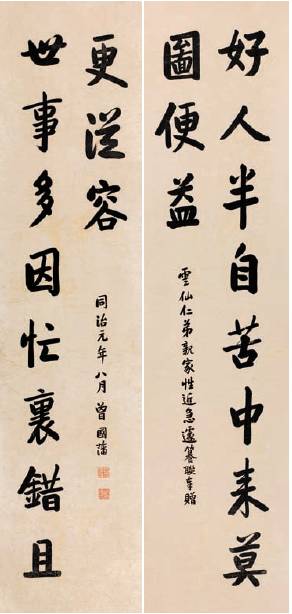 好人半自苦中来莫
圖便益
雲仙仁弟親家性近急遽篹聯奉贈
世事多因忙裏錯且
更從容
同治元年八月曾國藩